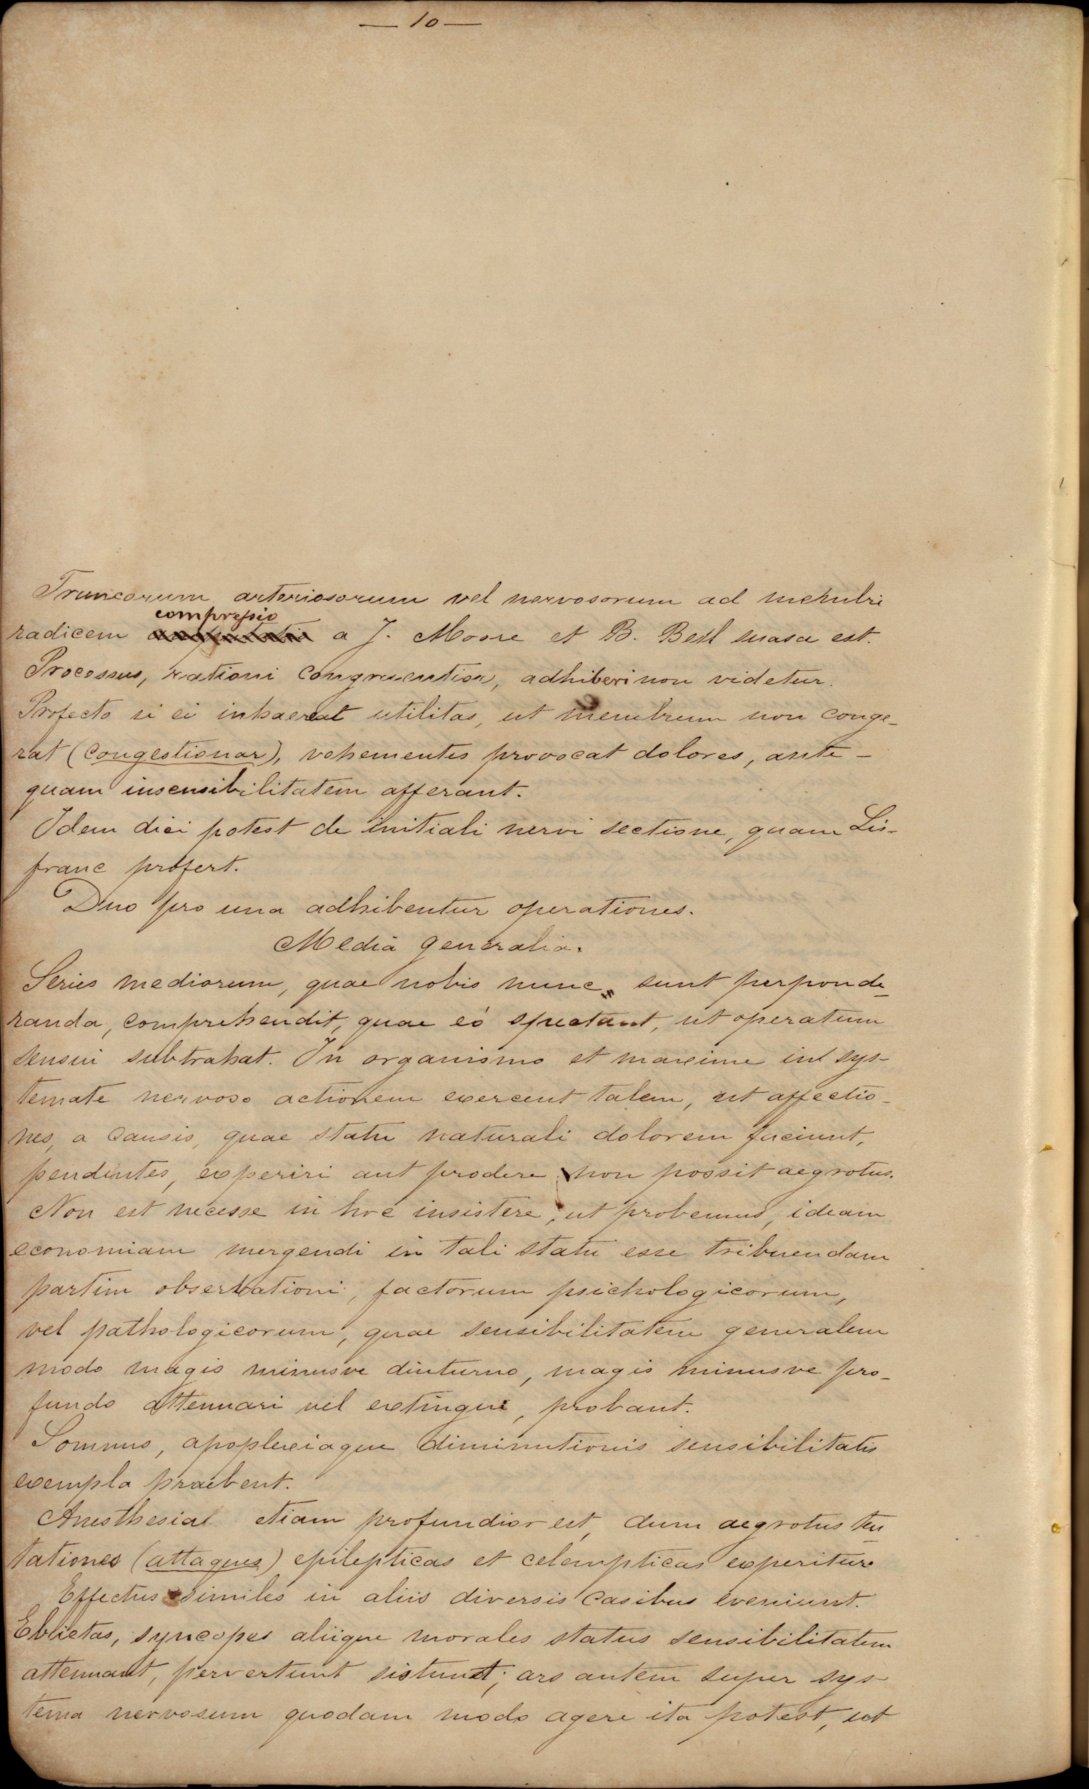 — 10 —
Truncorum arteriosorum vel nervosorum ad membri
compressio
radicem a J. Moore et B. Bell suasa est.
Processus, rationi congruentior, adhiberi non videtur.
Profecto si ei inhaereat utilitas, ut membrum non conge-
rat (congestionar), vehementes provocat dolores, ante-
quam insensibilitatem afferant.
Idem dici potest de initiali nervi sectione, quam Lis-
franc profert.
Duo pro una adhibentur operationes.
Media generalia.
Series mediorum, quae nobis nunc sunt perponde-
randa, comprehendit, quae eó spectant, ut operatum
sensui subtrahat. In organismo et maxime in sys-
temate nervoso actionem exercent talem, ut affectio-
nes, a causis, quae statu naturali dolorem faciunt,
pendentes, experiri aut prodere non possit aegrotus.
Non est necesse in hoc insistere, ut probemus, ideam
economiam mergendi in tali statu esse tribuendam
partim observationi, factorum psichologicorum,
vel pathologicorum, quae sensibilitatem generalem
modo magis minusve diuturno, magis minusve pro-
fundo attenuari vel extingui, probant.
Somnus, apoplexiaque diminutionis sensibilitatis
exempla praebent.
Anesthesial etiam profundior est, dum aegrotus ten
tationes (attaques) epilepticas et celempticas experitur
Effectus similes in aliis diversis casibus eveniunt.
Ebrietas, syncopes aliique morales status sensibilitatem
attenuant, pervertunt sistunt; ars autem super sys-
tema nervosum quodam modo agere ita potest, ut